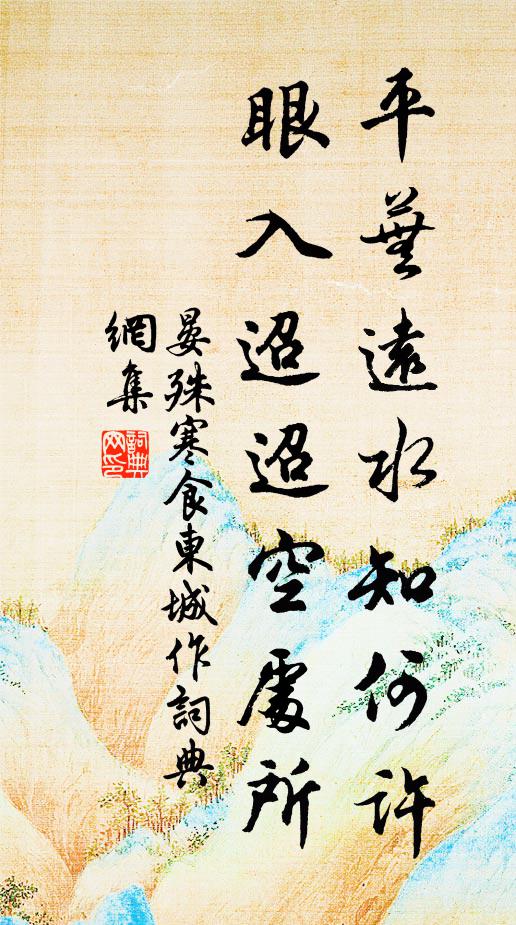 平蕪遠水知何許
眼入迢迢空處所
晏殊寒食東城作詞典
網集
詞典
网印